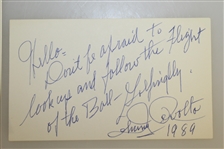 Hello.
Don't be afraid to
look up and follow the Flight
of the Ball -
1989